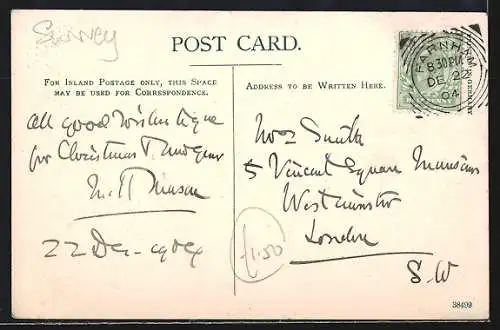 Surrey
POST CARD.
FOR INLAND POSTAGE ONLY, THIS SPACE
MAY BE USED FOR CORRESPONDENCE.
ADDRESS TO BE WRITTEN HERE.
FARNHAM
8 30 PM
DE 22
04
All good wishes
for Christmas & New Year
22 Dec 1904
Mrs Smith
5 Vincent Square Mansions
Westminster
London
S.W
£1.50
38499